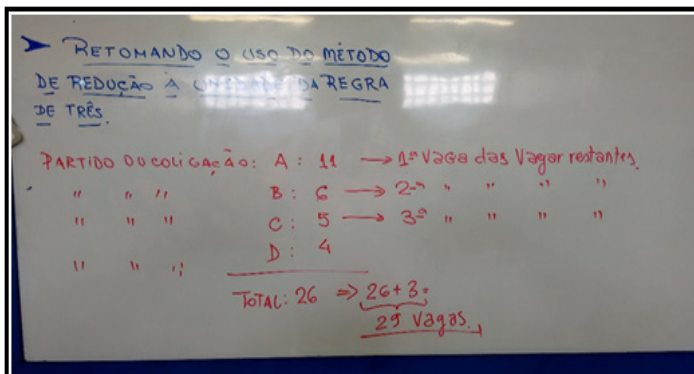 ➤ RETOMANDO O USO DO MÉTODO
DE REDUÇÃO À UNIDADE DA REGRA
DE TRÊS.
PARTIDO OU COLIGAÇÃO: A : 11 → 1ª Vaga das Vagar restantes.
" " " B : 6 → 2ª " " " "
" " " C : 5 → 3ª " " " "
" " " D : 4
TOTAL: 26 ⇒ 26+3=
29 Vagas.